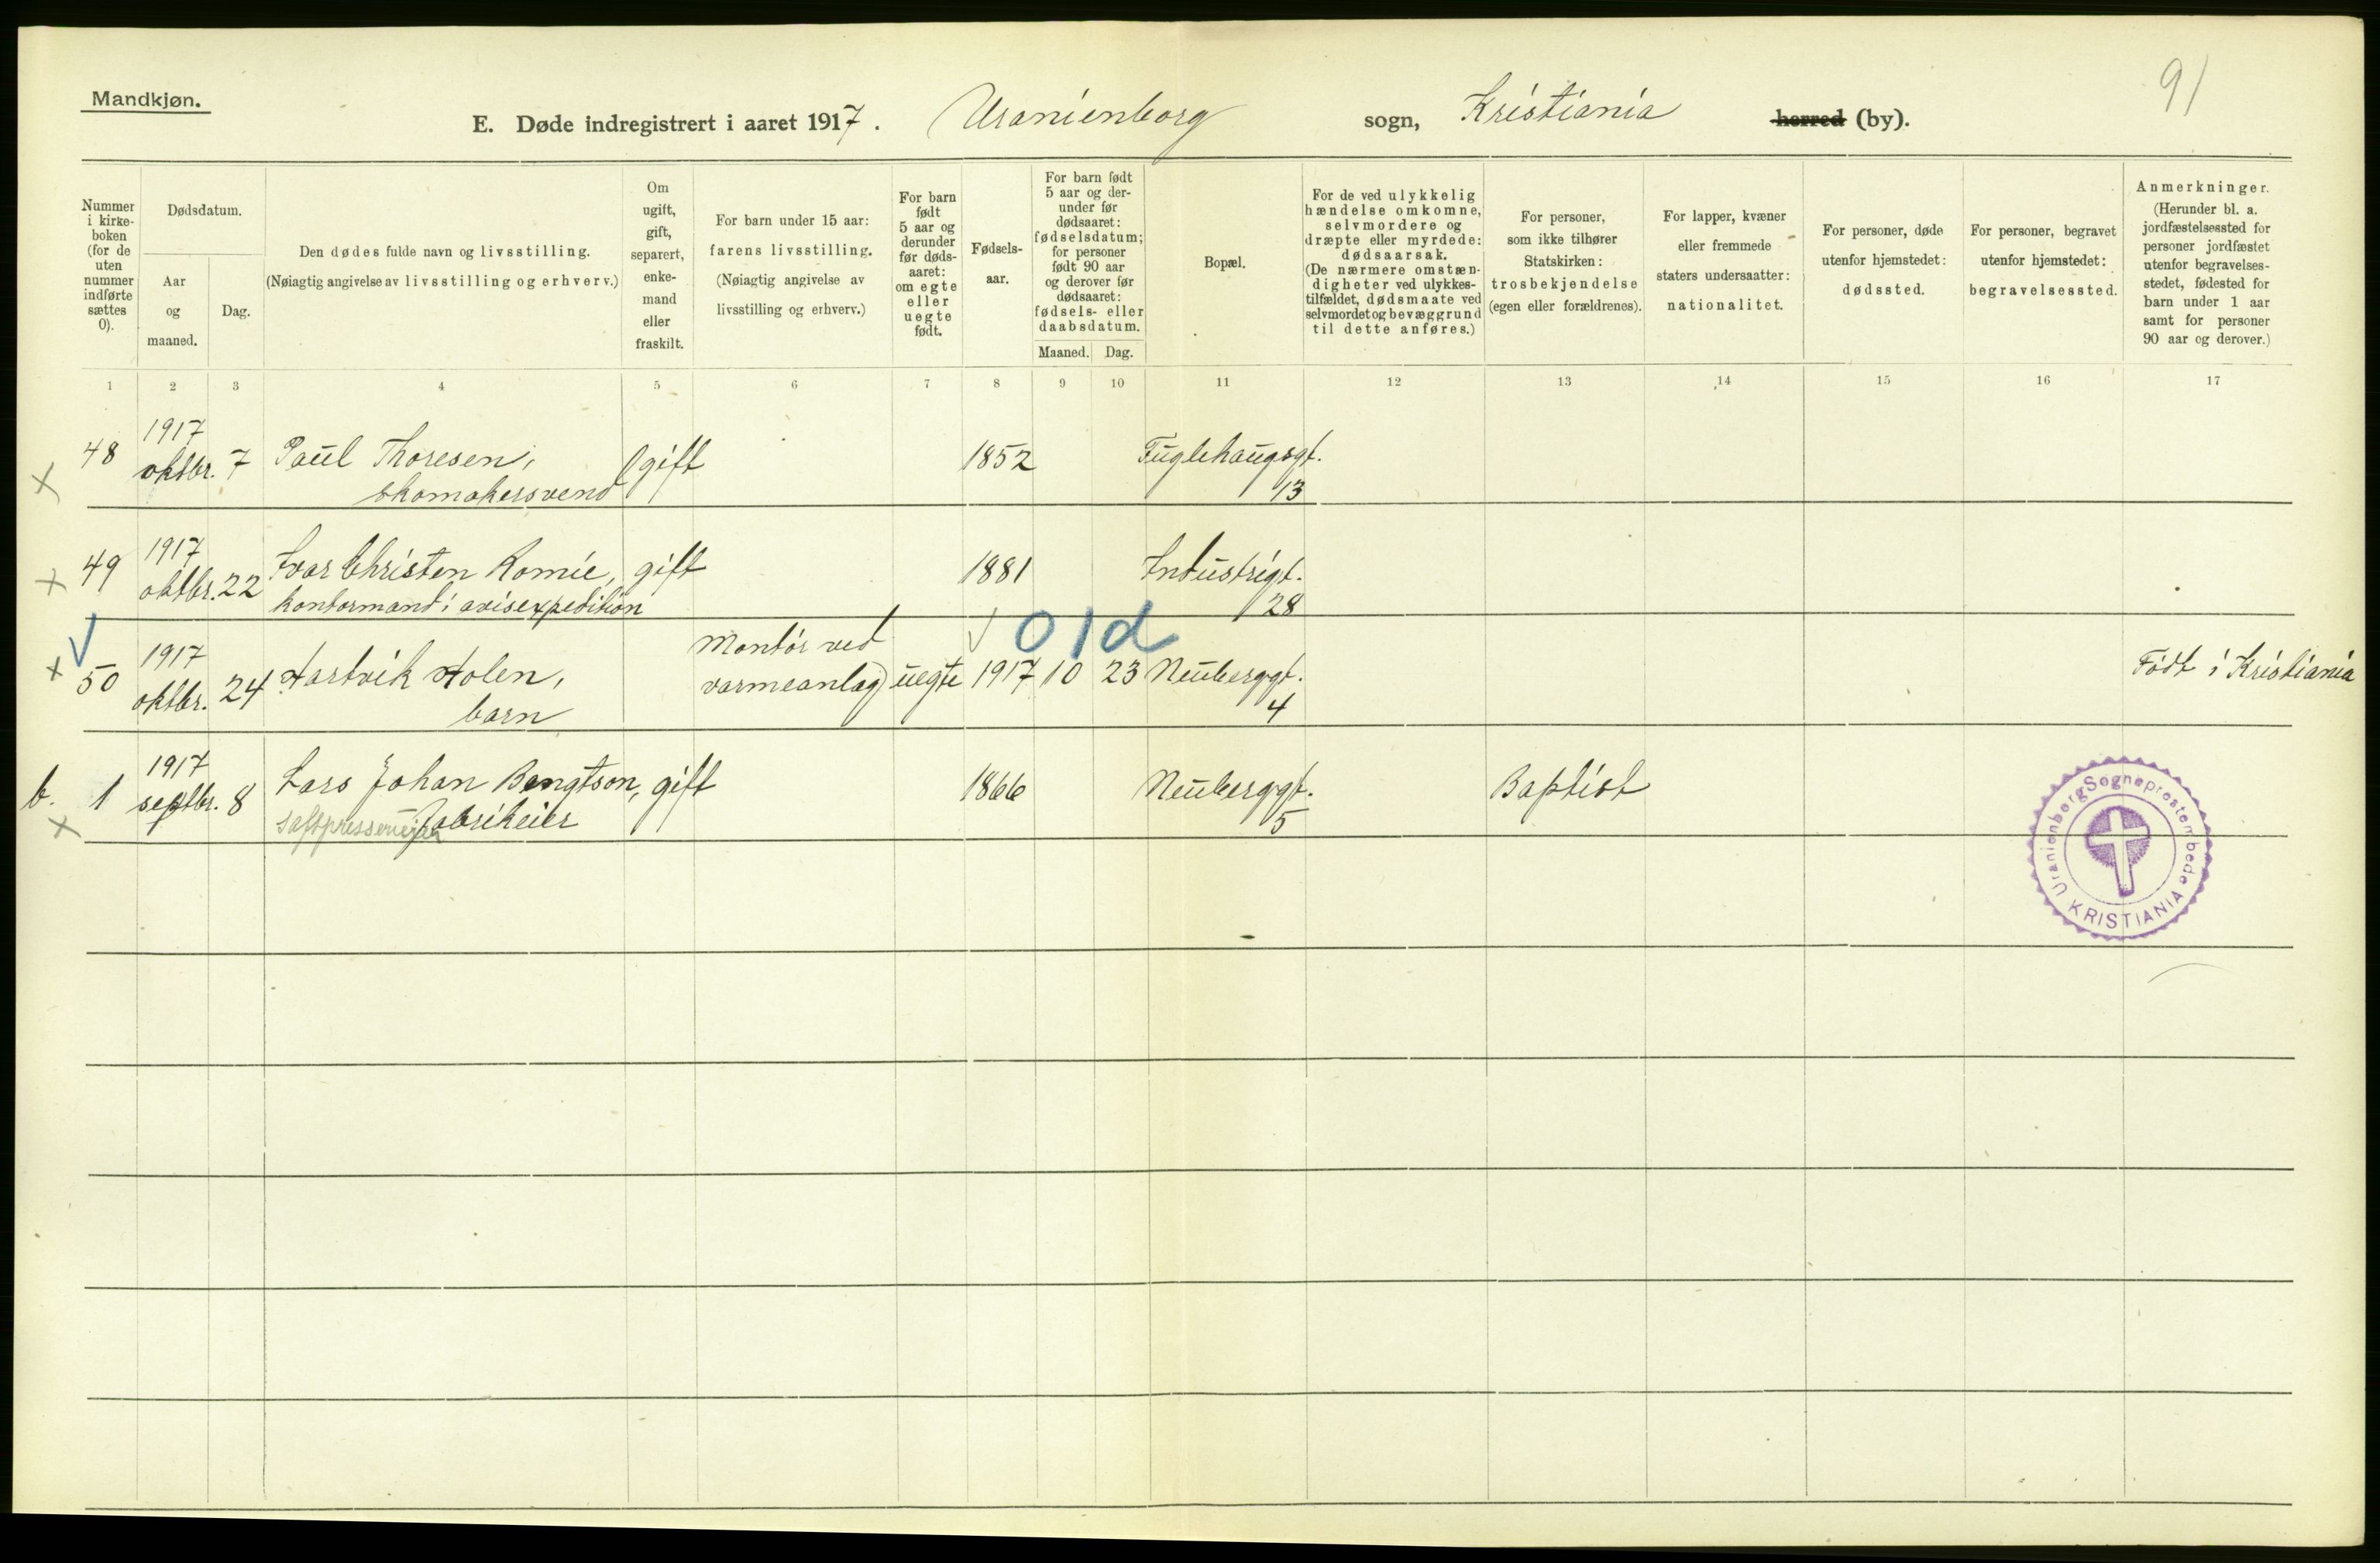 Mandkjøn.
91
E. Døde indregistrert i aaret 1917. Uranienborg sogn, Kristiania herred (by).
Nummer
i kirke-
boken
(for de
uten
nummer
indførte
sættes
0).
Dødsdatum.
Aar
og
maaned.
Dag.
Den dødes fulde navn og livsstilling.
(Nøiagtig angivelse av livsstilling og erhverv.)
Om
ugift,
gift,
separert,
enke-
mand
eller
fraskilt.
For barn under 15 aar:
farens livsstilling.
(Nøiagtig angivelse av
livsstilling og erhverv.)
For barn
født
5 aar og
derunder
før døds-
aaret:
om egte
eller
uegte
født.
Fødsels-
aar.
For barn født
5 aar og der-
under før
dødsaaret:
fødselsdatum;
for personer
født 90 aar
og derover før
dødsaaret:
fødsels- eller
daabsdatum.
Maaned. Dag.
Bopæl.
For de ved ulykkelig
hændelse omkomne,
selvmordere og
dræpte eller myrdede:
dødsaarsak.
(De nærmere omstæn-
digheter ved ulykkes-
tilfældet, dødsmaate ved
selvmordet og bevæggrund
til dette anføres.)
For personer,
som ikke tilhører
Statskirken:
trosbekjendelse
(egen eller forældrenes).
For lapper, kvæner
eller fremmede
staters undersaatter:
nationalitet.
For personer, døde
utenfor hjemstedet:
dødssted.
For personer, begravet
utenfor hjemstedet:
begravelsessted.
Anmerkninger.
(Herunder bl. a.
jordfæstelsessted for
personer jordfæstet
utenfor begravelses-
stedet, fødested for
barn under 1 aar
samt for personer
90 aar og derover.)
1 2 3 4 5 6 7 8 9 10 11 12 13 14 15 16 17
1917
48 oktbr. 7 Paul Thoresen, gift 1852 Fuglehaugsgt.
x skomakersvend 13
1917
x 49 oktbr. 22 Ivar Christen Romie, gift 1881 Industrigt.
kontormand i avisexpedition 28
01d
1917 Montør ved
x 50 oktbr. 24 Hartvik Holen, varmeanlæg uegte 1917 10 23 Neuberggt. Født i Kristiania
barn 4
1917
b. 1 septbr. 8 Lars Johan Bengtson, gift 1866 Neuberggt. Baptist
x Saftpresserieier fabrikeier 5
Uranienborg Sogneprestembede
KRISTIANIA